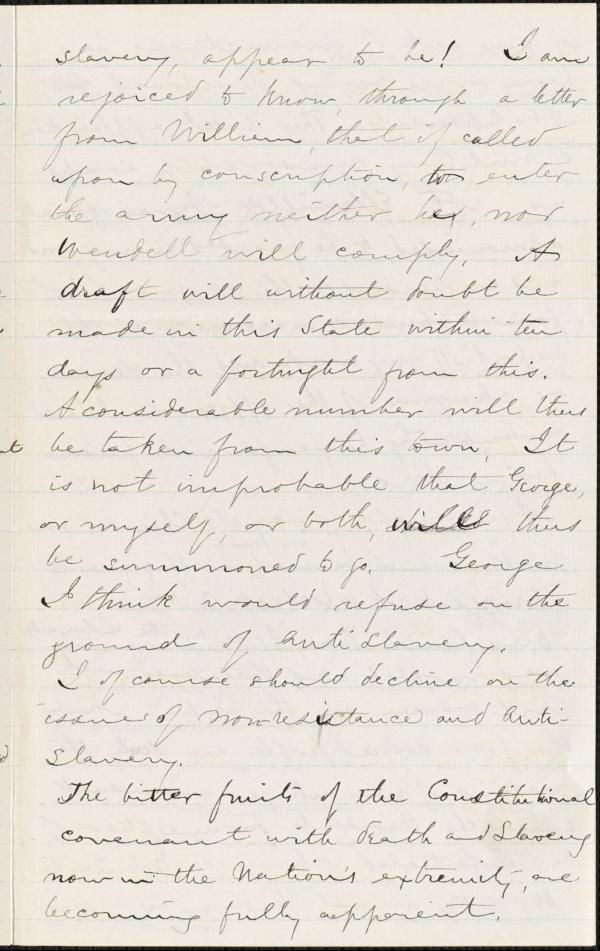 slavery, appear to be! I am
rejoiced to know, through a letter
from William, that if called
upon by conscription, to enter
the army neither he, nor
Wendell will comply. A
draft will without doubt be
made in this State within ten
days or a fortnight from this.
A considerable number will thus
be taken from this town. It
is not improbable that George,
or myself, or both, will thus
be summoned to go. George
I think would refuse on the
ground of Anti Slavery.
I of course should decline on the
issue of nonresistance and Anti-
Slavery.
The bitter fruits of the Constitutional
covenant with death and Slavery
now in the Nation's extremity, are
becoming fully apparent.